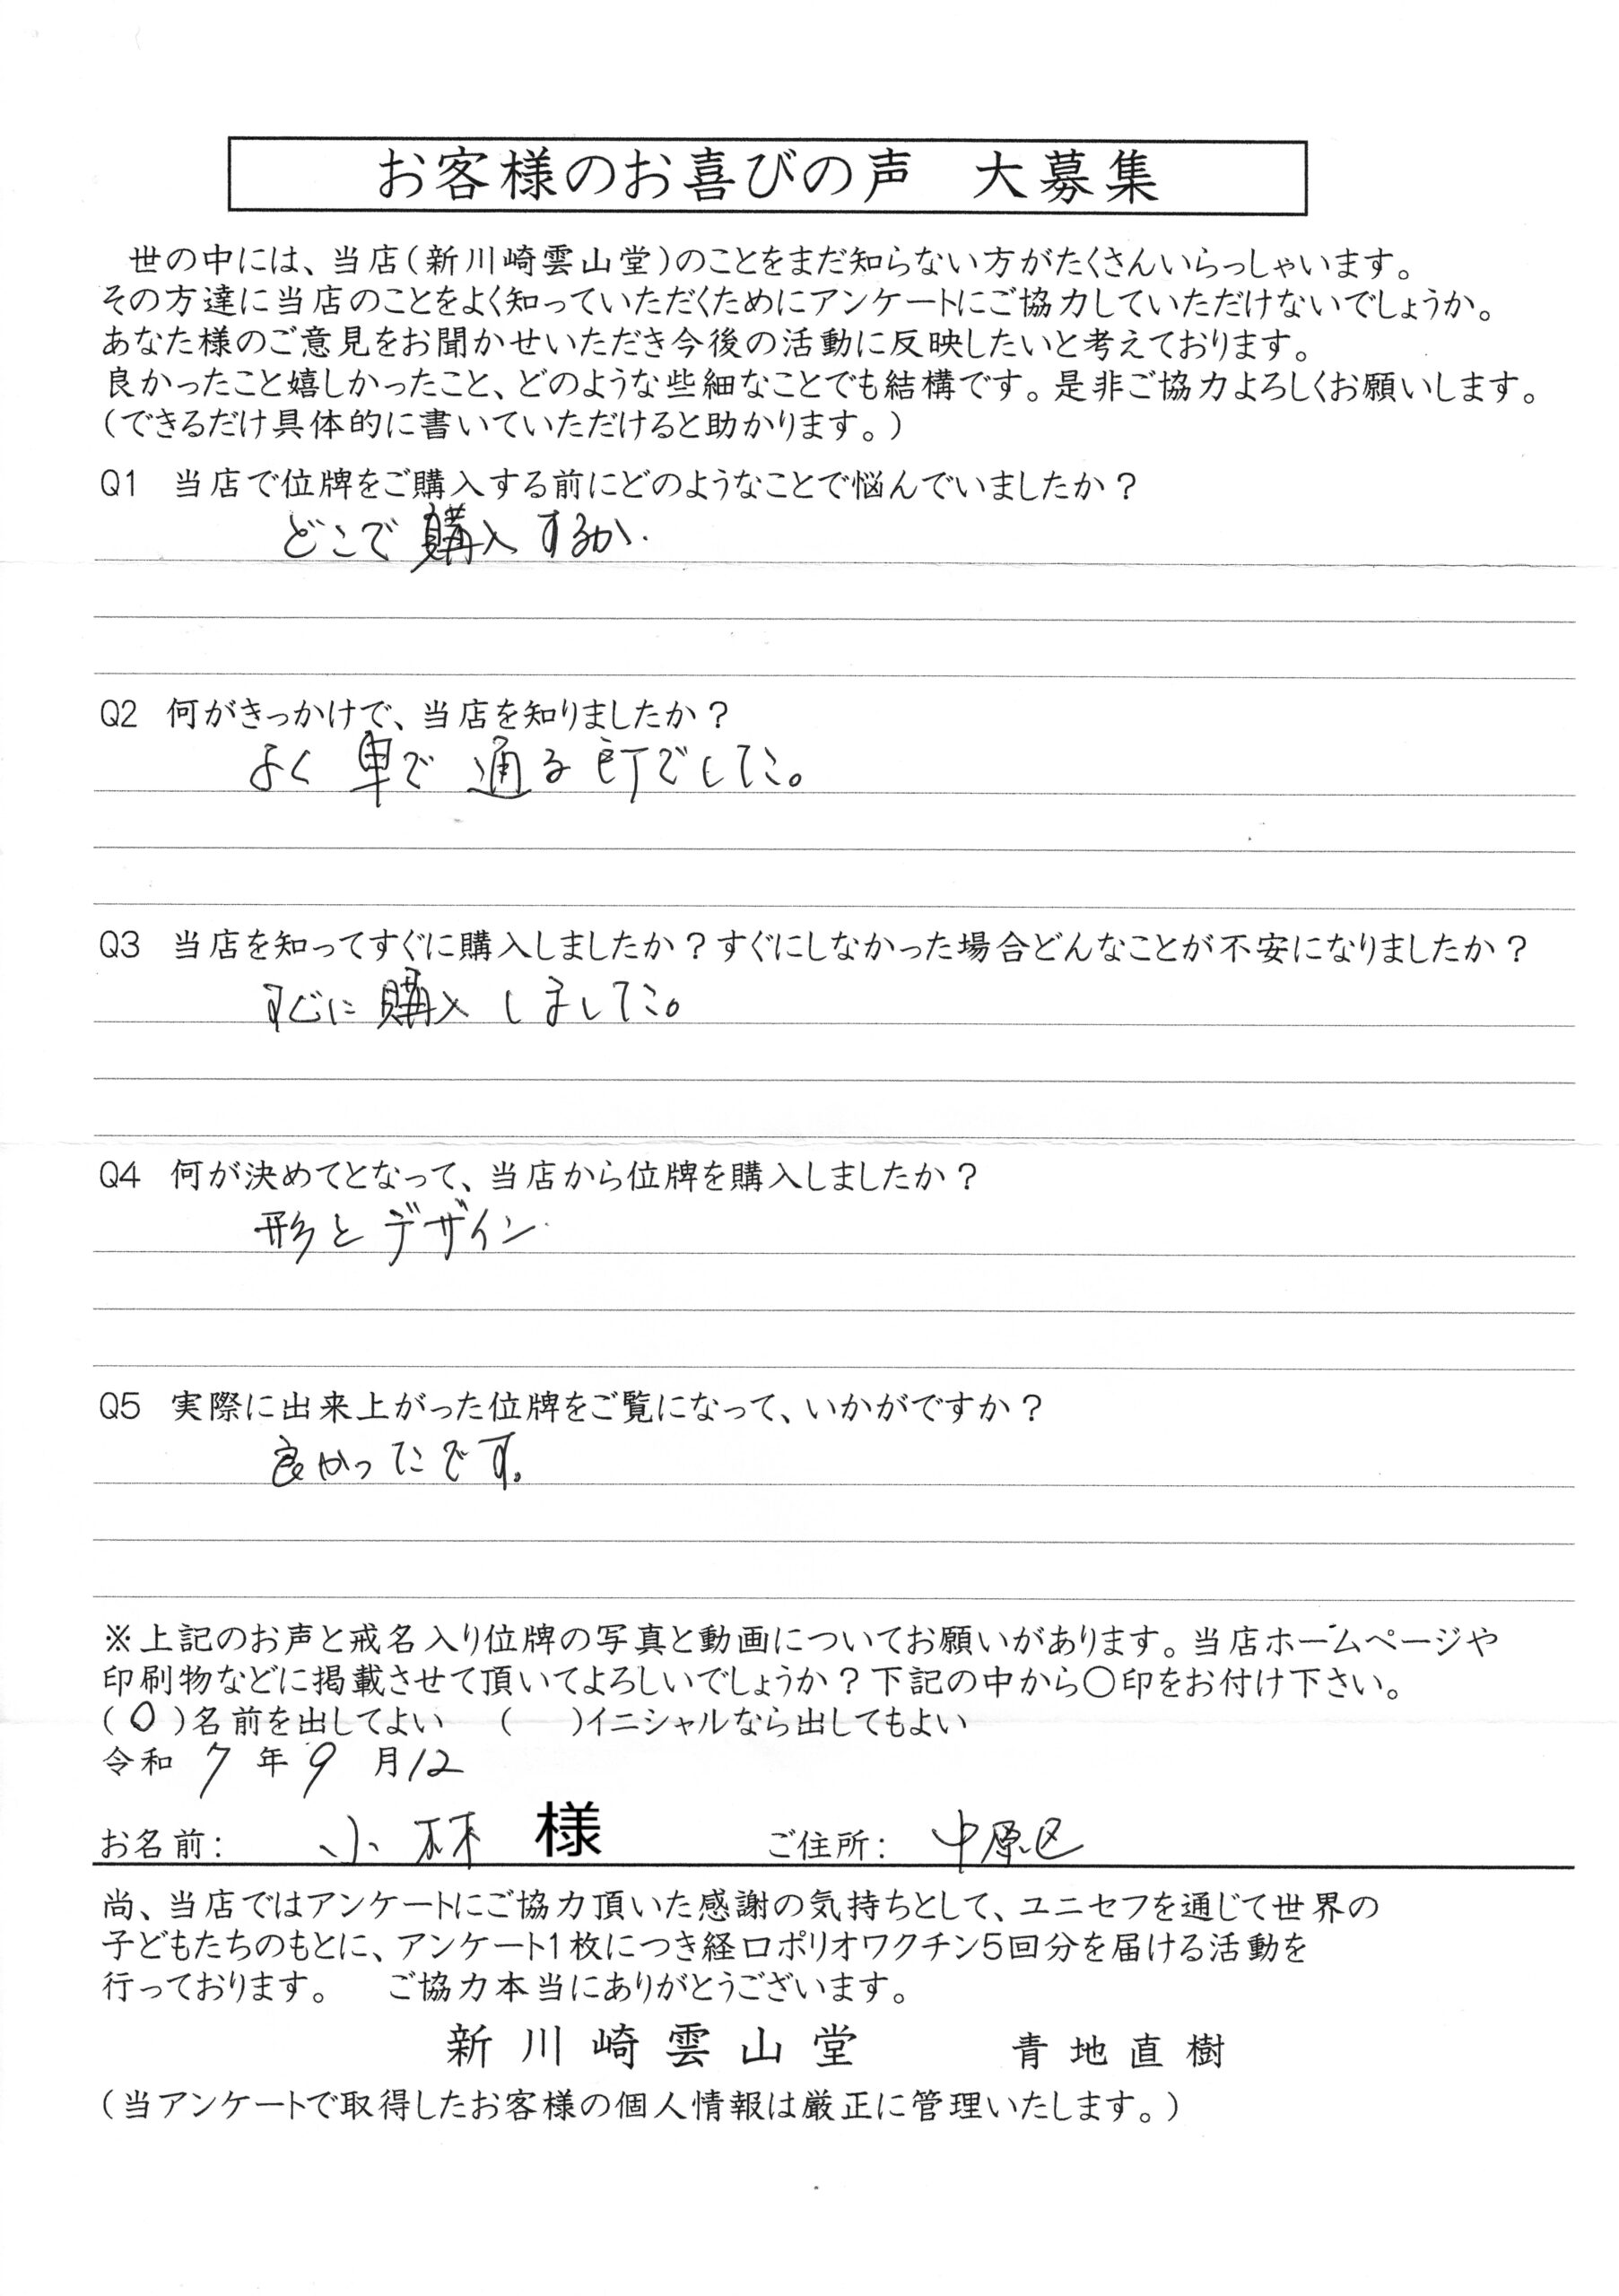 お客様のお喜びの声　大募集
世の中には、当店(新川崎雲山堂)のことをまだ知らない方がたくさんいらっしゃいます。
その方達に当店のことをよく知っていただくためにアンケートにご協力していただけないでしょうか。
あなた様のご意見をお聞かせいただき今後の活動に反映したいと考えております。
良かったこと嬉しかったこと、どのような些細なことでも結構です。是非ご協力よろしくお願いします。
(できるだけ具体的に書いていただけると助かります。)
Q1　当店で位牌をご購入する前にどのようなことで悩んでいましたか？
どこで購入するか.
Q2　何がきっかけで、当店を知りましたか？
よく車で通る所でした。
Q3　当店を知ってすぐに購入しましたか？すぐにしなかった場合どんなことが不安になりましたか？
すぐに購入しました。
Q4　何が決めてとなって、当店から位牌を購入しましたか？
形とデザイン.
Q5　実際に出来上がった位牌をご覧になって、いかがですか？
良かったです。
※上記のお声と戒名入り位牌の写真と動画についてお願いがあります。当店ホームページや
印刷物などに掲載させて頂いてよろしいでしょうか？下記の中から〇印をお付け下さい。
(〇)名前を出してよい　(　)イニシャルなら出してもよい
令和 7 年 9 月 12
お名前:　小林　様　ご住所:　中原区
尚、当店ではアンケートにご協力頂いた感謝の気持ちとして、ユニセフを通じて世界の
子どもたちのもとに、アンケート1枚につき経口ポリオワクチン5回分を届ける活動を
行っております。　ご協力本当にありがとうございます。
新川崎雲山堂　青地直樹
(当アンケートで取得したお客様の個人情報は厳正に管理いたします。)